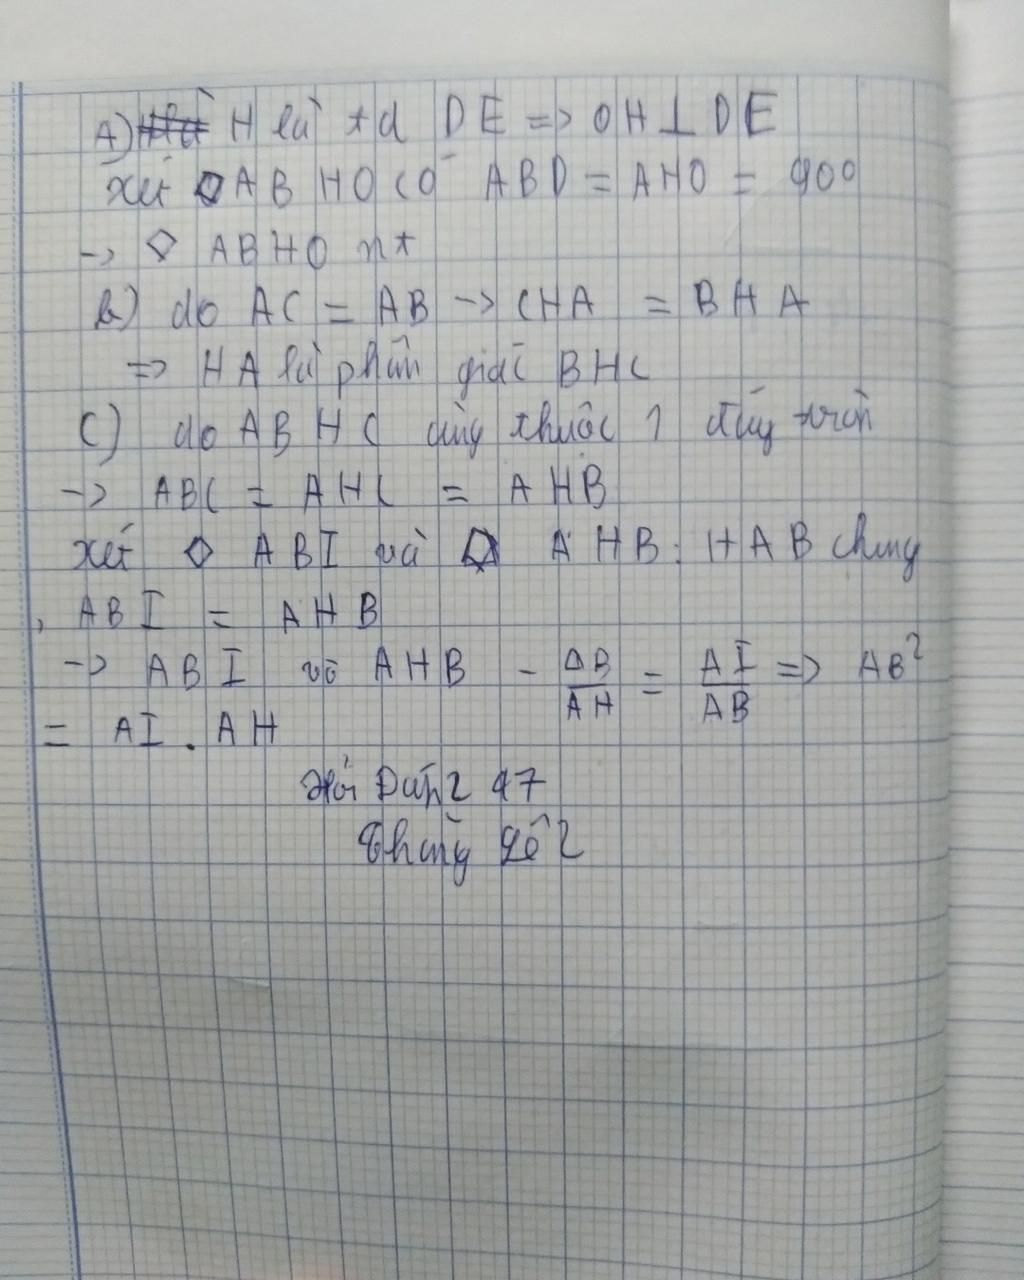 A) H là td DE => OH⊥DE
Xét ◇ABHO có ABD = AHO = 900
-> ◇ ABHO nt
b) do AC = AB -> CHA = BHA
=> HA là phân giác BHC
C) do ABHC cùng thuộc 1 đường tròn
-> ABC = AHC = AHB
Xét ◇ ABI và AHB : HAB chung
, ABI = AHB
-> ABI AHB - AB/AH = AI/AB => AB²
= AI . AH
47